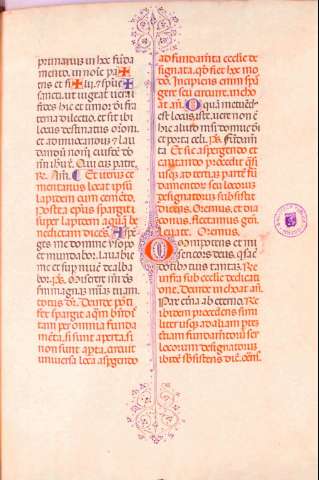 primarium in hoc funda
mento. in noīe pa✠
tris et fi✠lii. ⁊ spūs✠
sancti. ut vigeat vera
fides hic et timor dei fra
terna dilectio. et sit ibi
locus destinatus oroni.
et ad invocanduꝫ ⁊ lau
dandū nomē eiusdē dn̄i
Qui cum patre.
R. Am̄. Et iterum ce
mentarius locat ipsū
lapidem cum cemēto.
Postea ep̄us spargit s
super lapidem aquā be
nedictam dicēs. Asp
ges me domine ysopo
et mundabor. lavabis
me et sup nivē dealba
bor. ps. Miserere mei
magnam misericordiam
totus dr̄. Deinde pōti
fex spargit aqm bn̄dī
tam per omnia funda
mēta. si sunt aperta. si
non sunt apta. circuit
universa loca aspergendo
ad fundamēta ecclīe de
signata. qd̄ fiet hoc mo
do. Incipiens enim spar
gere seu circuire. incho
at an̄. O quā metuēd
est locus iste. vere non ē
hic aliud nisi domus dei
et porta celi. ps. Fūdam
ta. Et sic aspergendo et
cantando procedit qn̄
usqꝫ ad tertiam partē fū
damentoꝝ seu locorum
designatorum subsistit
dicens. Oremus. et dia
conus. Flectamus gen
Levate. Oremus.
Omnipotens et mi
sericors deus. qui sac
dotibus tuis tantam. Re
infra sub ecclīe dedicati
one. Deinde inchoat an̄.
Pax eterna ab eterno. Re
ibidem procedens simi
liter usqꝫ ad aliam p̄tem
tiam fundamentoꝝ seu
locorum designatorum
ibidē subsistens dic. Orem̄.